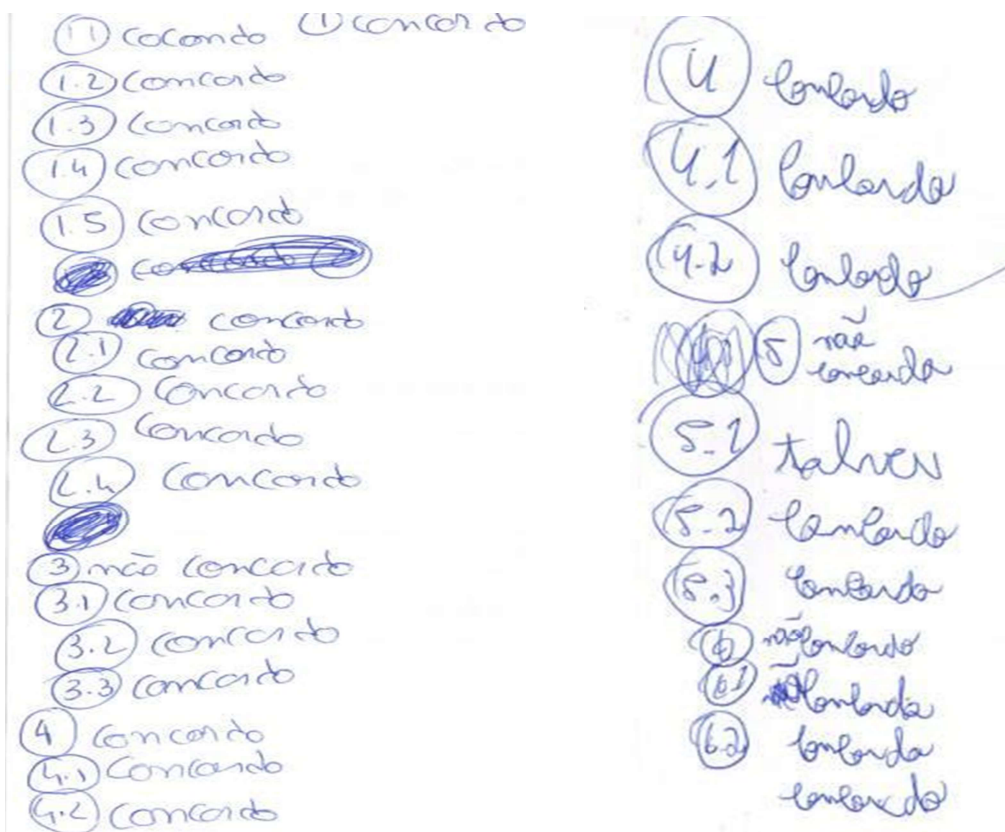 1.1 coconcdo 1 concordo
1.2 concordo
1.3 concordo
1.4 concordo
1.5 concordo
2 concordo
2.1 concordo
2.2 concordo
2.3 concordo
2.4 concordo
3 não concordo
3.1 concordo
3.2 concordo
3.3 concordo
4 concordo
4.1 concordo
4.2 concordo
4 concordo
4.1 concorda
4.2 concordo
5 não
concorda
5.1 talvez
5.2 concordo
5.3 concordo
6 não concordo
6.1 não concorda
6.2 concorda
concordo